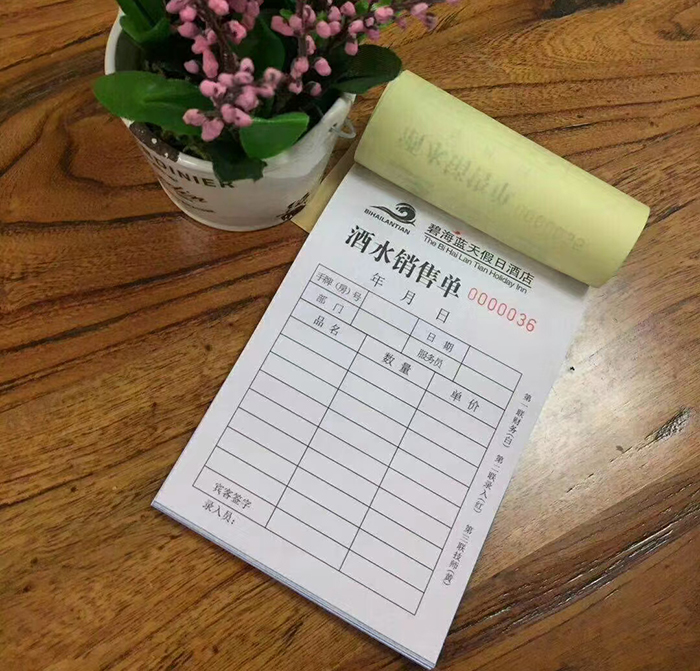 DINIER
BIHAILANTIAN
碧海蓝天假日酒店
The Bi Hai Lan Tian Holiday Inn
酒水销售单
0000036
年 月 日
手牌(房)号 日期
部门 服务员
品名 数量 单价
宾客签字
录入员:
第一联财务(白) 第二联录入(红) 第三联技师(黄)